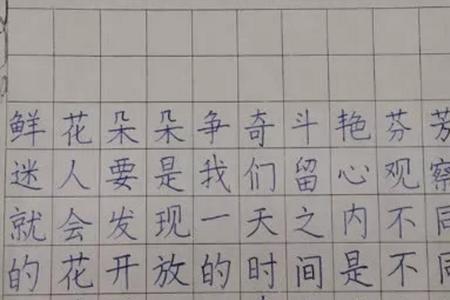 鲜花朵朵争奇斗艳芬芳
迷人要是我们留心观察
就会发现一天之内不同
的花开放的时间是不同